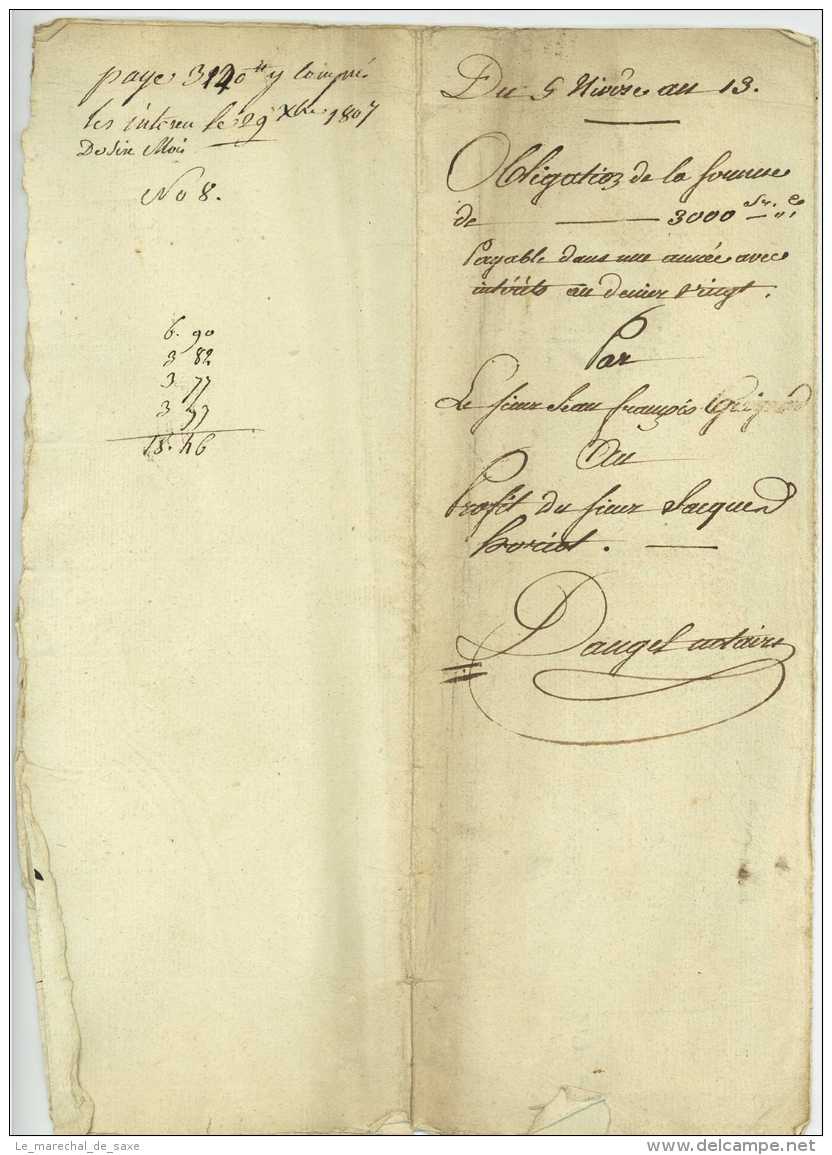 paye 3120 ₶ y compris
les intéreu le 29 Xbre 1807
De Six Mois
No 8.
6. 90
3 82
3 77
3 97
18. 46
Du 5 Nivôse an 13.
Obligation de la somme
de — 3000 fr. C
Payable dans une année avec
intérêts au denier vingt.
Par
Le sieur Jean françois
Au
Profit du sieur Jacques
horiot. —
Daugel notaire
Le_marechal_de_saxe
www.delcampe.net